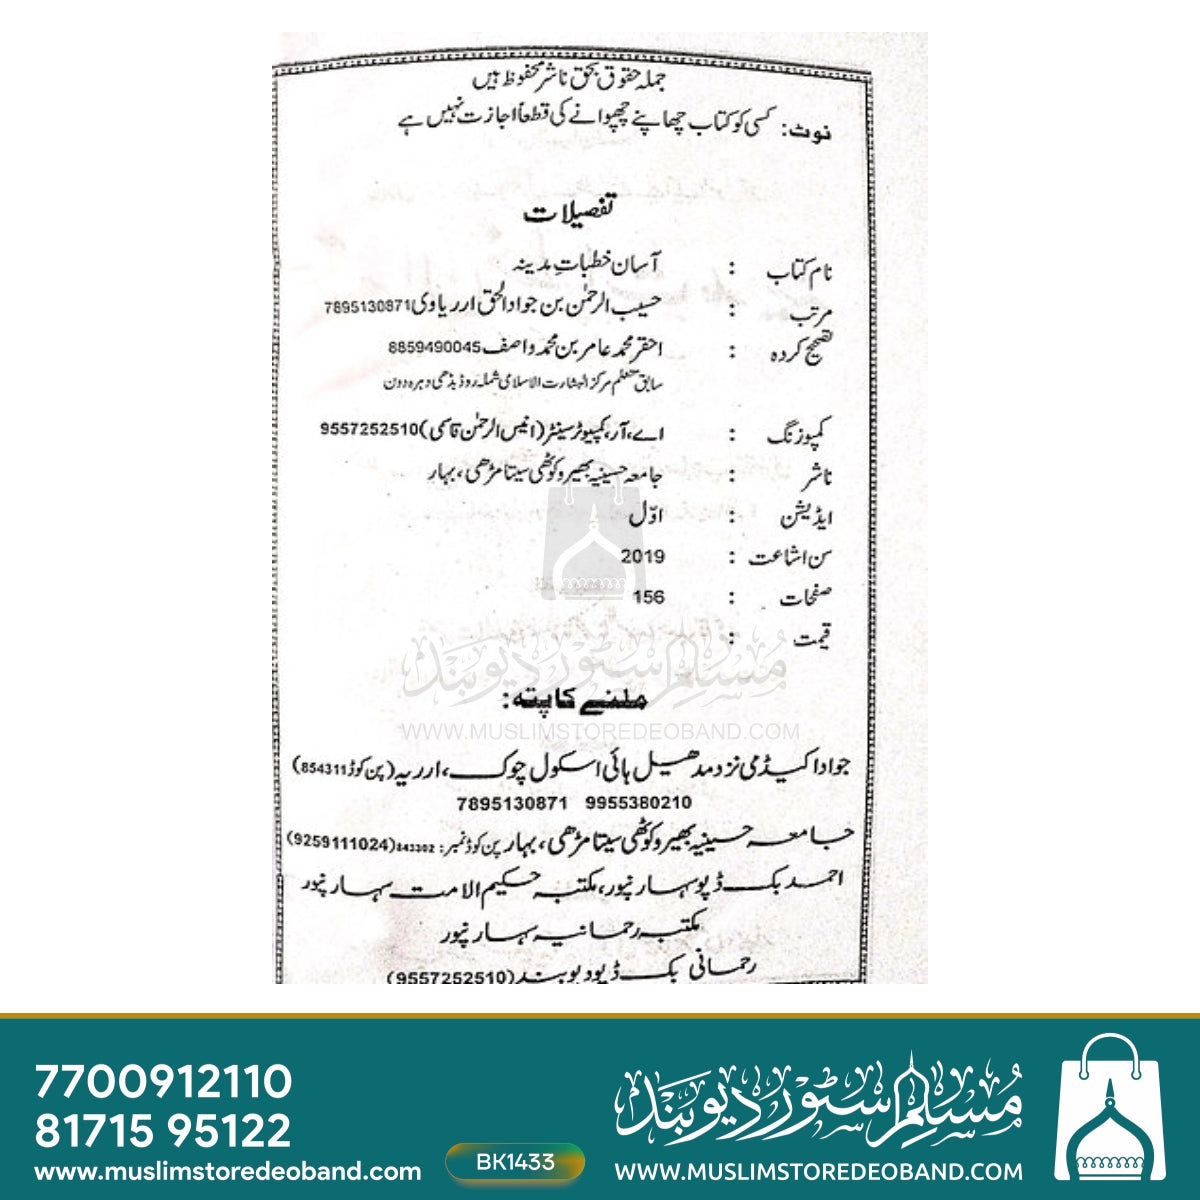 جملہ حقوق بحق ناشر محفوظ ہیں
نوٹ: کسی کو کتاب چھاپنے چھپوانے کی قطعاً اجازت نہیں ہے
تفصیلات
نام کتاب : آسان خطباتِ مدینہ
مرتب : حسیب الرحمٰن بن جواد الحق ارریاوی 7895130871
تصحیح کردہ : احقر محمد عامر بن محمد واصف 8859490045
سابق معلم مرکز البشارت الاسلامی شملہ روڈ بڈھی دہرہ دون
کمپوزنگ : اے، آر، کمپیوٹر سینٹر (انیس الرحمٰن قاسمی) 9557252510
ناشر : جامعہ حسینیہ بھیروکوٹھی سیتامڑھی، بہار
ایڈیشن : اوّل
سن اشاعت : 2019
صفحات : 156
قیمت :
مسلم سٹور دیوبند
WWW.MUSLIMSTOREDEOBAND.COM
ملنے کا پتہ:
جواد اکیڈمی نزد مدھیل ہائی اسکول چوک، ارریہ (پن کوڈ 854311)
7895130871 9955380210
جامعہ حسینیہ بھیروکوٹھی سیتامڑھی، بہار پن کوڈ نمبر: 843302 (9259111024)
احمد بک ڈپو سہارنپور، مکتبہ حکیم الامت سہارنپور
مکتبہ رحمانیہ سہارنپور
رحمانی بک ڈپو دیوبند (9557252510)
7700912110
81715 95122
www.muslimstoredeoband.com
BK1433
مسلم سٹور دیوبند
WWW.MUSLIMSTOREDEOBAND.COM